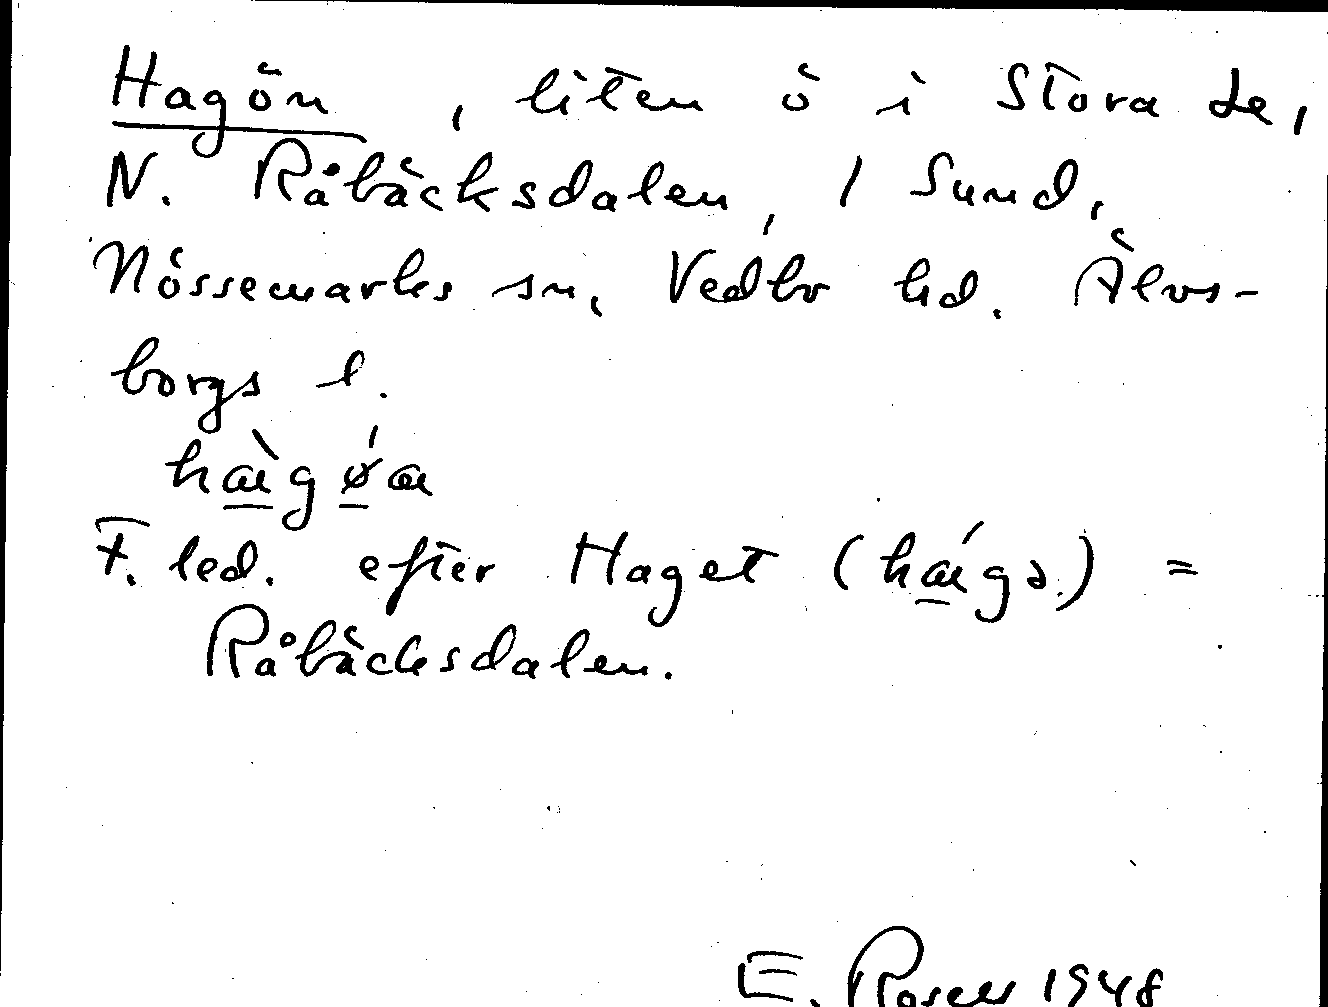 Hagön, liten ö i Stora Le,
N. Råbäcksdalen, 1 Sund,
Nössemarks sn, Vedbo hd. Älvs-
borgs l.
hàgǿa
F. led. efter Haget (hágə) =
Råbäcksdalen.
E. Rosell 1948